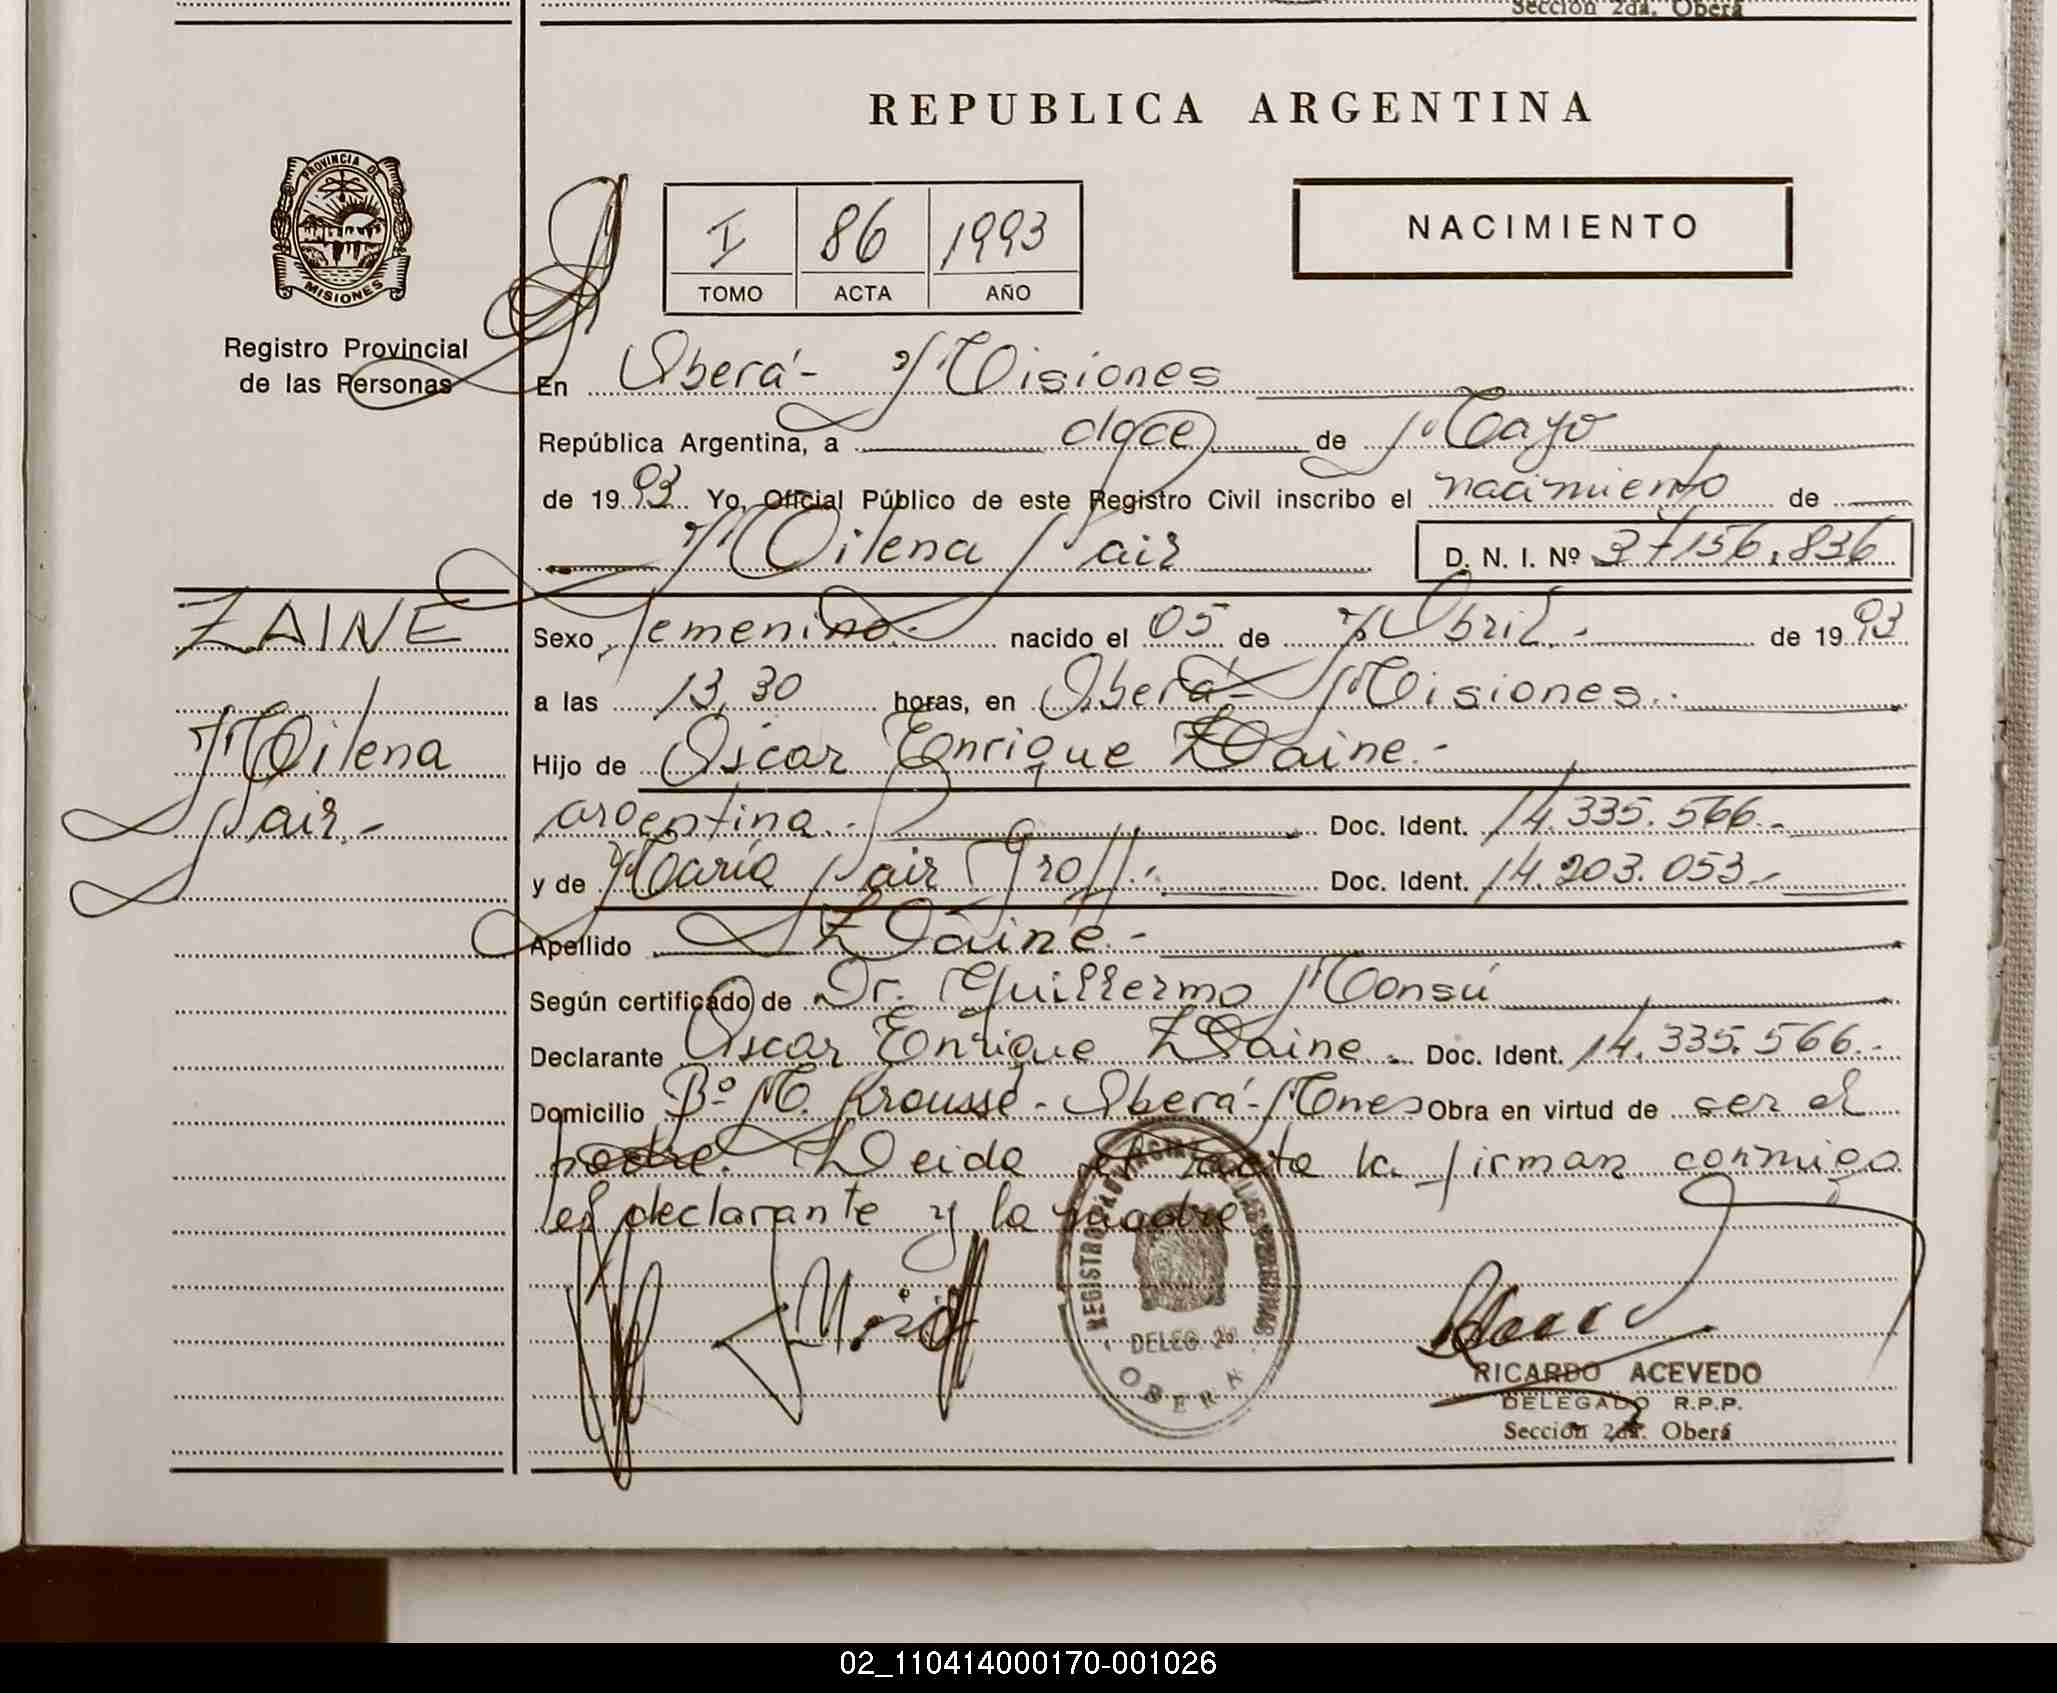 Sección 2da. Oberá
REPUBLICA ARGENTINA
PROVINCIA DE
MISIONES
Registro Provincial
de las Personas
I 86 1993
TOMO ACTA AÑO
NACIMIENTO
En Oberá - Misiones
República Argentina, a doce de Mayo
de 1993 Yo, Oficial Público de este Registro Civil inscribo el nacimiento de
Milena Yair D. N. I. Nº 37156.836
ZAINE
Milena
Yair.-
Sexo Femenino.- nacido el 05 de Abril.- de 1993
a las 13,30 horas, en Oberá - Misiones.-
Hijo de Oscar Enrique Zaine.-
argentina.- Doc. Ident. 14.335.566.-
y de María Yair Groff.- Doc. Ident. 14.203.053.-
Apellido Zaine.-
Según certificado de Dr. Guillermo Monsú
Declarante Oscar Enrique Zaine. Doc. Ident. 14.335.566.-
Domicilio Bº M. Krausse - Oberá - Mnes Obra en virtud de ser el
padre. Leida el acta la firman conmigo
el declarante y la madre
REGISTRO PROVINCIAL DE LAS PERSONAS
DELEG. 2a
OBERA
RICARDO ACEVEDO
DELEGADO R.P.P.
Sección 2da. Oberá
02_110414000170-001026